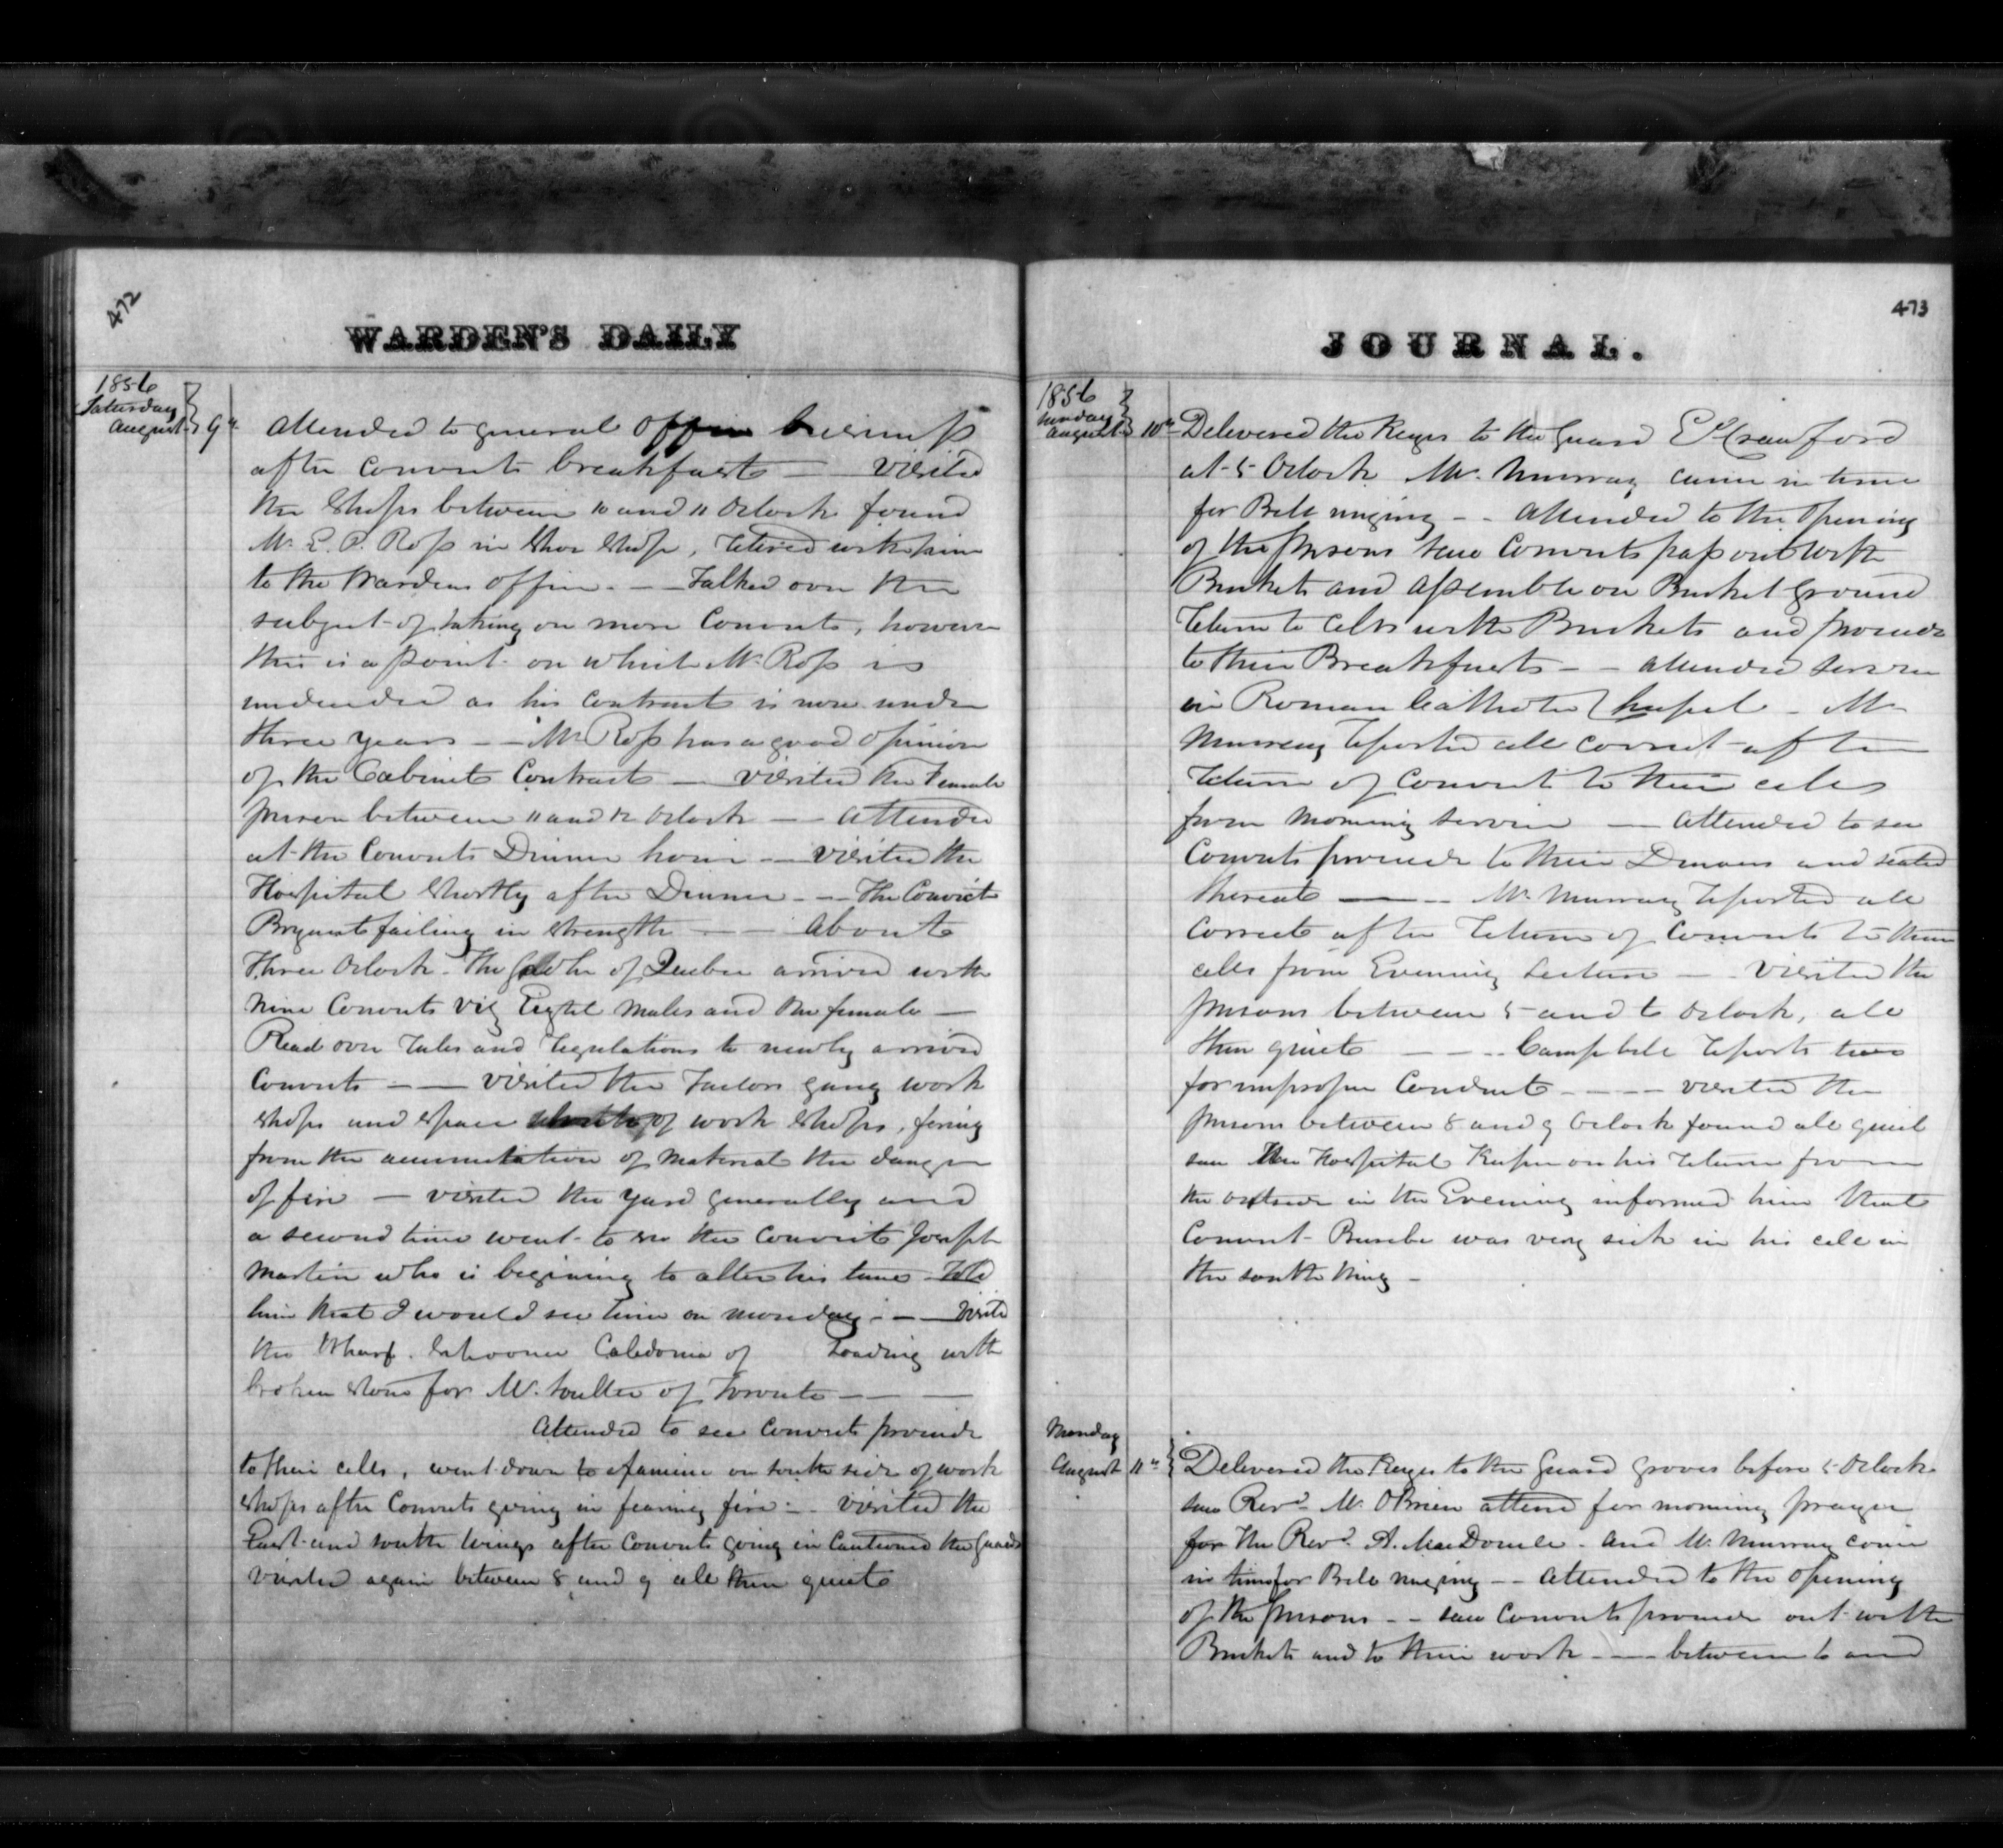 472
WARDEN'S DAILY
1856
Saturday
August 9th
Attended to general Office business
after Convicts breakfasts — visited
the Shops between 10 and 11 Oclock found
Mr. E. P. Ross in Shoe Shop, retired with him
to the Wardens office. — Talked over the
subject of taking on more Convicts, however
this is a point on which Mr. Ross is
undecided as his contract is now under
three years — Mr. Ross has a good opinion
of the Cabinet Contract — visited the Female
prison between 11 and 12 Oclock — attended
at the Convicts Dinner hour — visited the
Hospital Shortly after Dinner — The Convict
Bryant failing in strength — about
three Oclock. The Jailer of Quebec arrived with
nine Convicts viz Eight Males and One female —
Read over rules and regulations to newly arrived
Convicts — visited the Tailors gang work
shops and space of work shops, fearing
from the accumulation of Material the danger
of fire — visited the yard generally and
a second time went to see the Convict Joseph
Martin who is begining to alter his tune Told
him that I would see him on monday — Visited
the Wharf. Schooner Caledonia of Loading with
broken stone for Mr. of Toronto —
Attended to see Convicts proceede
to their cells, went down to Examine on south side of work
shops after Convicts going in fearing fire — visited the
East and south wings after Convicts going in Cautioned the Guards
visited again between 8 and 9 all then quiet
JOURNAL.
473
1856
Sunday
August 10th
Delivered the Keys to the Guard Crawford
at 5 Oclock Mr. Murray came in time
for Bell ringing — Attended to the Opening
of the prisons saw Convicts pass out with
Buckets and assemble on Bucket ground
return to Cells with Buckets and proceede
to their Breakfasts — attended service
in Roman Catholic Chapel — Mr
Murray reported all correct after
return of Convicts to their cells
from Morning Service — attended to see
Convicts proceede to their Dinners and seated
thereat — Mr. Murray reported all
Correct after return of Convicts to their
cells from Evening Lecture — Visited the
prisons between 5 and 6 Oclock, all
then quiet — Campbell reports two
for improper Conduct — visited the
prisons between 8 and 9 Oclock found all quiet
saw the Hospital Keeper on his return from
the outside in the Evening informed him that
Convict was very sick in his cell in
the south Wing —
Monday
August 11th
Delivered the Keys to the Guard Groves before 5 Oclock
saw Revd. Mr. OBrien attend for morning prayer
for the Revd. A. MacDonell. and Mr. Murray come
in time for Bell ringing — Attended to the opening
of the prisons — saw Convicts proceede out with
Buckets and to their work — between 6 and